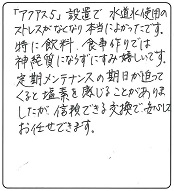 「アクアス5」設置で 水道水使用の
ストレスがなくなり本当によかったです。
特に飲料、食事作りでは
神経質にならずにすみ嬉しいです。
定期メンテナンスの期日が迫って
くると塩素を感じることがありま
したが、信頼できる交換で、安心して
お任せできます。